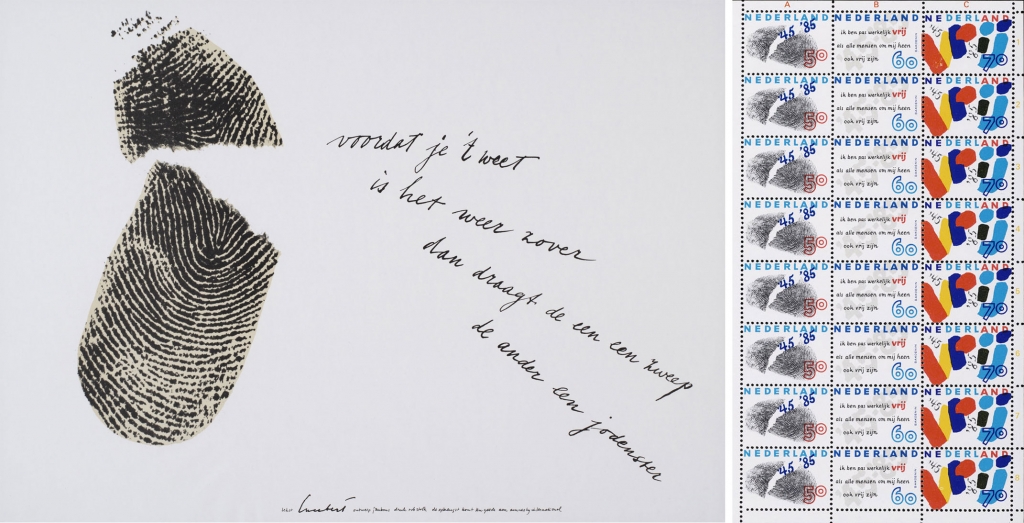 voordat je 't weet
is het weer zover
dan draagt de een een zweep
de ander een jodenster
tekst lucebert ontwerp druk rob stolk de opbrengst komt ten goede aan amnesty international
A B C
NEDERLAND NEDERLAND NEDERLAND
'45 '85 ik ben pas werkelijk vrij '45
als alle mensen om mij heen
50 ook vrij zijn. 60 '85 70
NEDERLAND NEDERLAND NEDERLAND
'45 '85 ik ben pas werkelijk vrij '45
als alle mensen om mij heen
50 ook vrij zijn. 60 '85 70
NEDERLAND NEDERLAND NEDERLAND
'45 '85 ik ben pas werkelijk vrij '45
als alle mensen om mij heen
50 ook vrij zijn. 60 '85 70
NEDERLAND NEDERLAND NEDERLAND
'45 '85 ik ben pas werkelijk vrij '45
als alle mensen om mij heen
50 ook vrij zijn. 60 '85 70
NEDERLAND NEDERLAND NEDERLAND
'45 '85 ik ben pas werkelijk vrij '45
als alle mensen om mij heen
50 ook vrij zijn. 60 '85 70
NEDERLAND NEDERLAND NEDERLAND
'45 '85 ik ben pas werkelijk vrij '45
als alle mensen om mij heen
50 ook vrij zijn. 60 '85 70
NEDERLAND NEDERLAND NEDERLAND
'45 '85 ik ben pas werkelijk vrij '45
als alle mensen om mij heen
50 ook vrij zijn. 60 '85 70
NEDERLAND NEDERLAND NEDERLAND
'45 '85 ik ben pas werkelijk vrij '45
als alle mensen om mij heen
50 ook vrij zijn. 60 '85 70